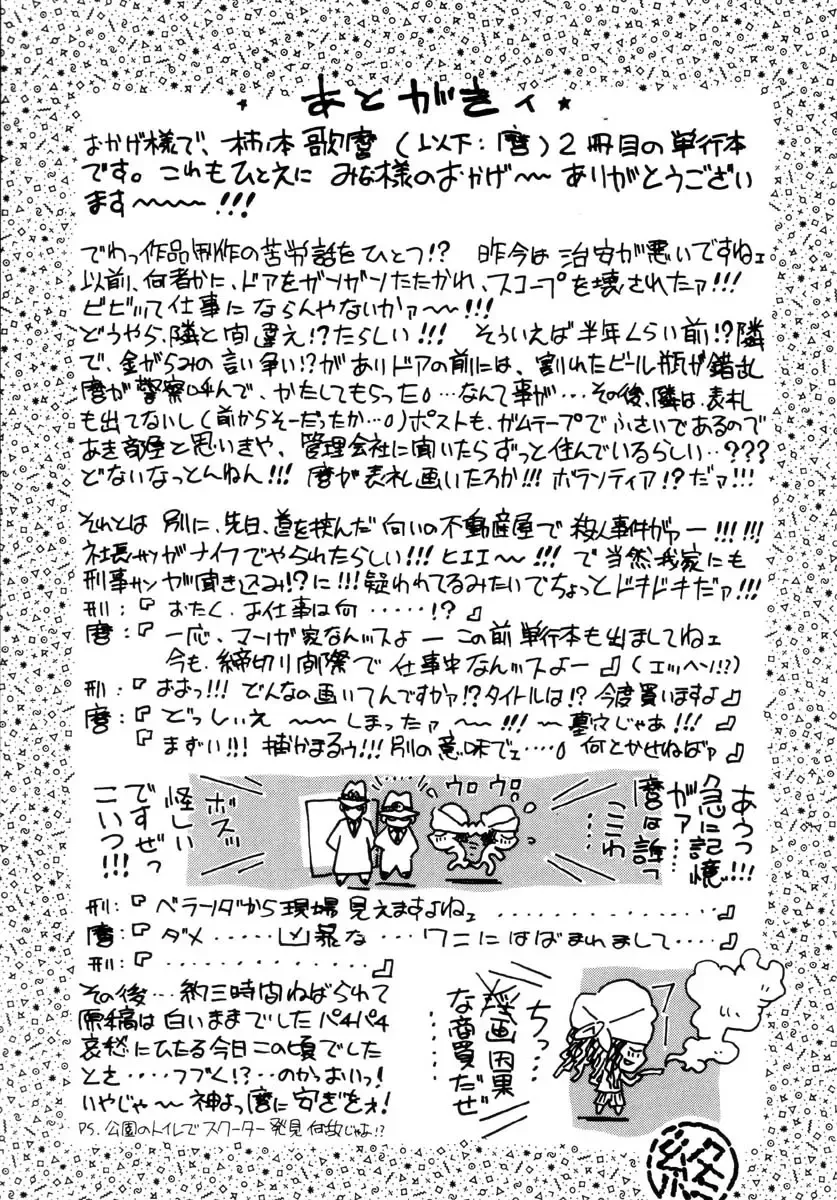 あとがきィ
おかげ様で、柿ノ本歌麿(以下:麿)2冊目の単行本
です。これもひとえに みな様のおかげ〜〜ありがとうござい
ます〜〜〜!!!
でわっ作品制作の苦労話をひとつ!? 昨今は治安が悪いですねェ
以前、何者かに、ドアをガンガンたたかれ、スコープを壊されたァ!!!
ビビッて仕事に ならんやないかァ〜〜!!!
どうやら、隣と間違え!?たらしい!!! そういえば半年くらい前!?隣
で、金がらみの言い争い!?がありドアの前には、割れたビール瓶が錯乱
麿が警察呼んで、かたしてもらった。…なんて事が…その後、隣は、表札
も出てないし(前からそーだったか…。)ポストも、ガムテープでふさいであるので
あき部屋と思いきや、管理会社に聞いたらずっと住んでいるらしい…???
どないなっとんねん!!! 麿が表札画いたろか!!! ボランティア!?だァ!!!
それとは 別に、先日、道を挟んだ 向いの不動産屋で 殺人事件がァー!!! !!!
社長サンがナイフでやられたらしい!!! ヒエエ〜!!! で 当然我家にも
刑事サンが聞き込み!?に!!!疑われてるみたいでちょっとドキドキだァ!!!
刑:『 おたく、お仕事は何……!? 』
麿:『 一応、マンガ家なんスよー この前単行本も出ましてねェ
今も、締切り間際で 仕事中なんスよー 』(エッヘン!?)
刑:『 おおっ!!! どんなの画いてんですかァ!?タイトルは!? 今度買いますよ 』
麿:『 どっしぃえ 〜〜〜しまったァ 〜〜!!! 〜墓穴じゃあ!!! 』
『 まずい!!! 捕かまるゥ!!!別の意味でェ…。何とかせねばァ 』
あうっ!!!
急に記憶
がァ……
麿は誰っ
ここわ
……
ウロウロ
ボスッ
怪しい
ですぜっ
こいつ!!!
刑:『 ベランダから現場見えますよねェ ………… 』
麿:『 ダメ……凶暴な…ワニにはばまれまして…… 』
刑:『 …………… 』
その後…約三時間ねばられて
原稿は白いままでしたパチパチ
哀愁にひたる今日この頃でした
とさ……つづく!?…のかっおいっ!
いやじゃ〜神よっ麿に安ぎをェ!
PS. 公園のトイレでスクーター発見何故じゃ!?
ちっ…
画因果
な商買だぜ
……
フー